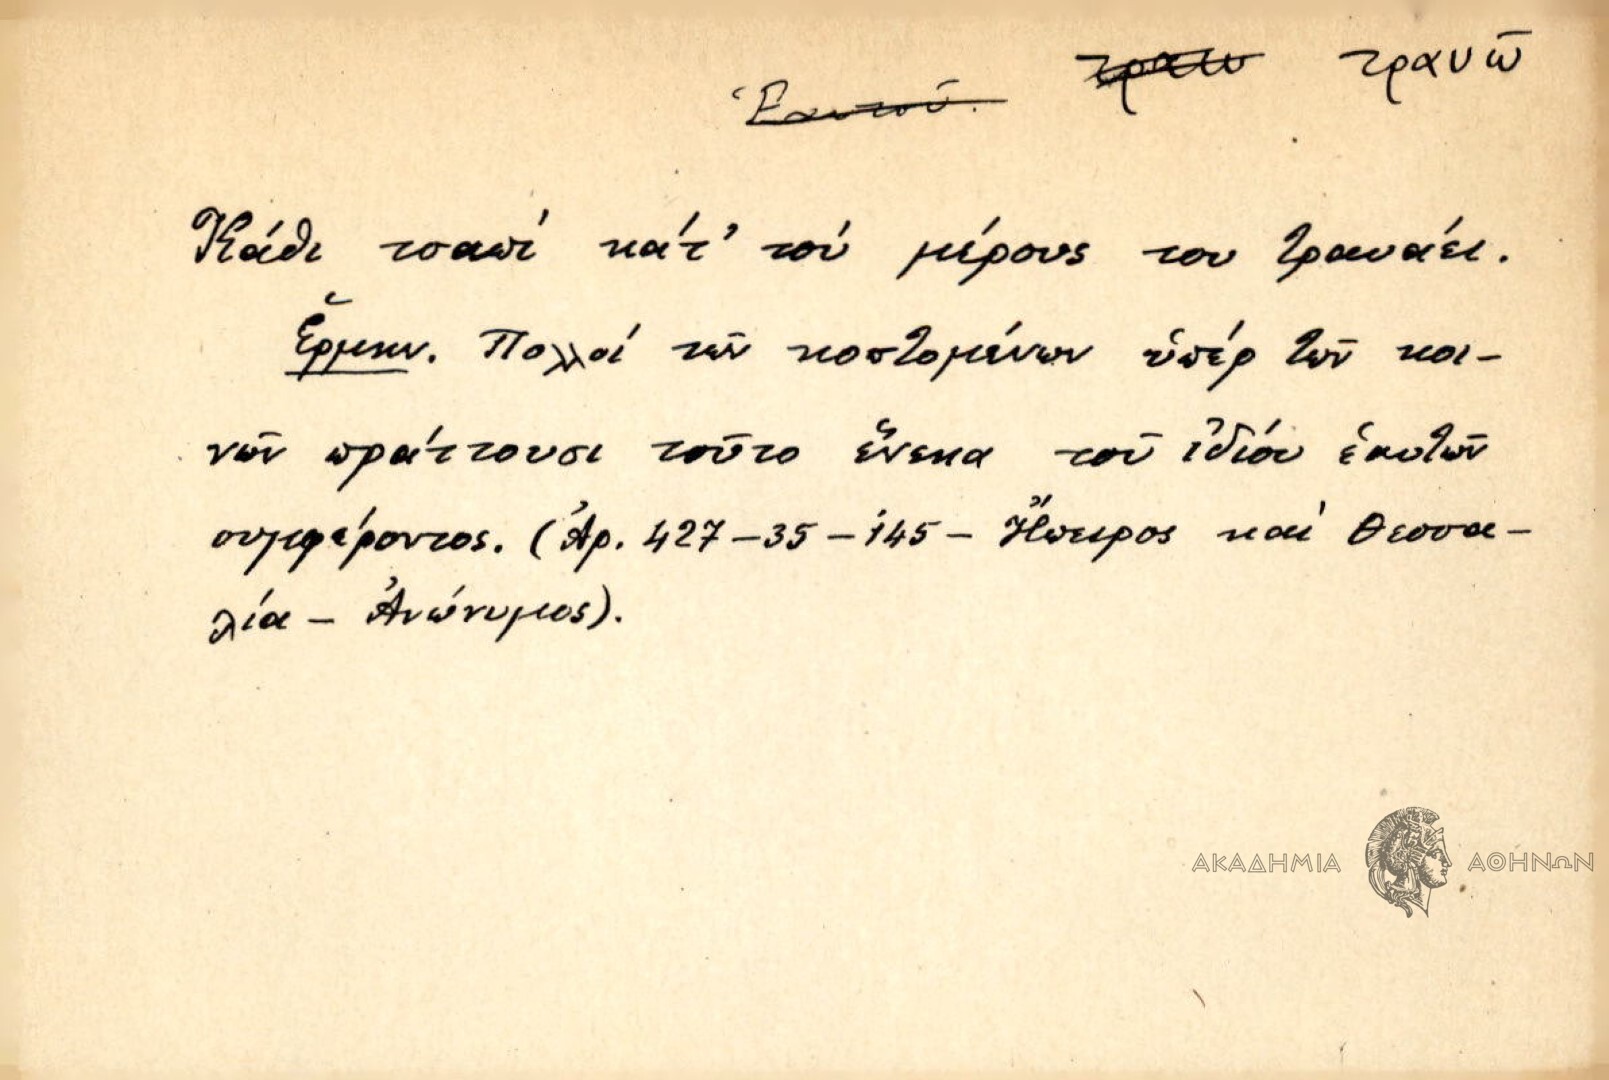 τρανῶ
Ἑαυτοῦ.
Κάθι τσαπί κάτ' τοὐ μέρους του τραυάει.
Ἑρμην. Πολλοί τῶν κοπτομένων ὑπέρ τῶν κοι-
νῶν πράττουσι τοῦτο ἕνεκα τοῦ ἰδίου ἑαυτῶν
συμφέροντος. (Ἀρ. 427-35-145- Ἤπειρος καί Θεσσα-
λία - Ἀνώνυμος).
ΑΚΑΔΗΜΙΑ ΑΘΗΝΩΝ